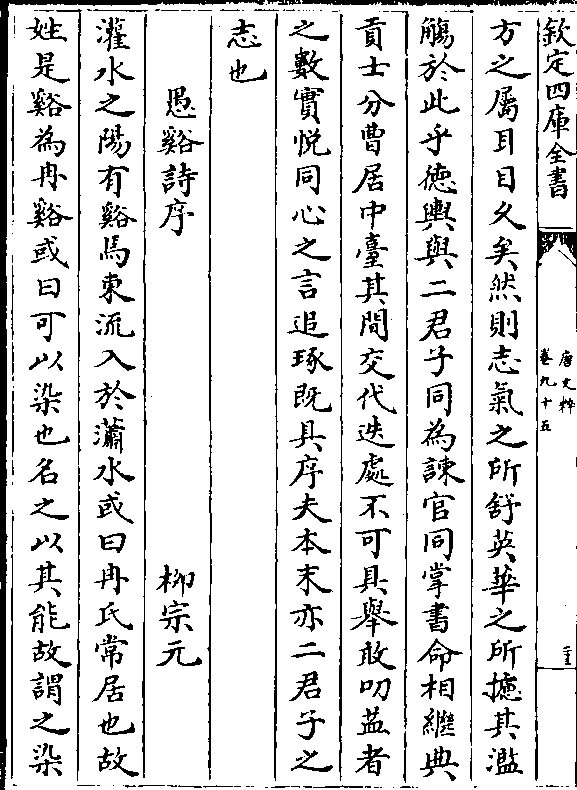 欽定四庫全書
唐文粹
卷九十五
方之屬耳目久矣然則志氣之所舒英華之所攄其濫
觴於此乎德輿與二君子同為諫官同掌書命相繼典
貢士分曹居中臺其間交代迭處不可具舉敢叨益者
之數實悅同心之言追琢既具序夫本末亦二君子之
志也
愚谿詩序 柳宗元
灌水之陽有谿焉東流入於瀟水或曰冉氏常居也故
姓是谿為冉谿或曰可以染也名之以其能故謂之染